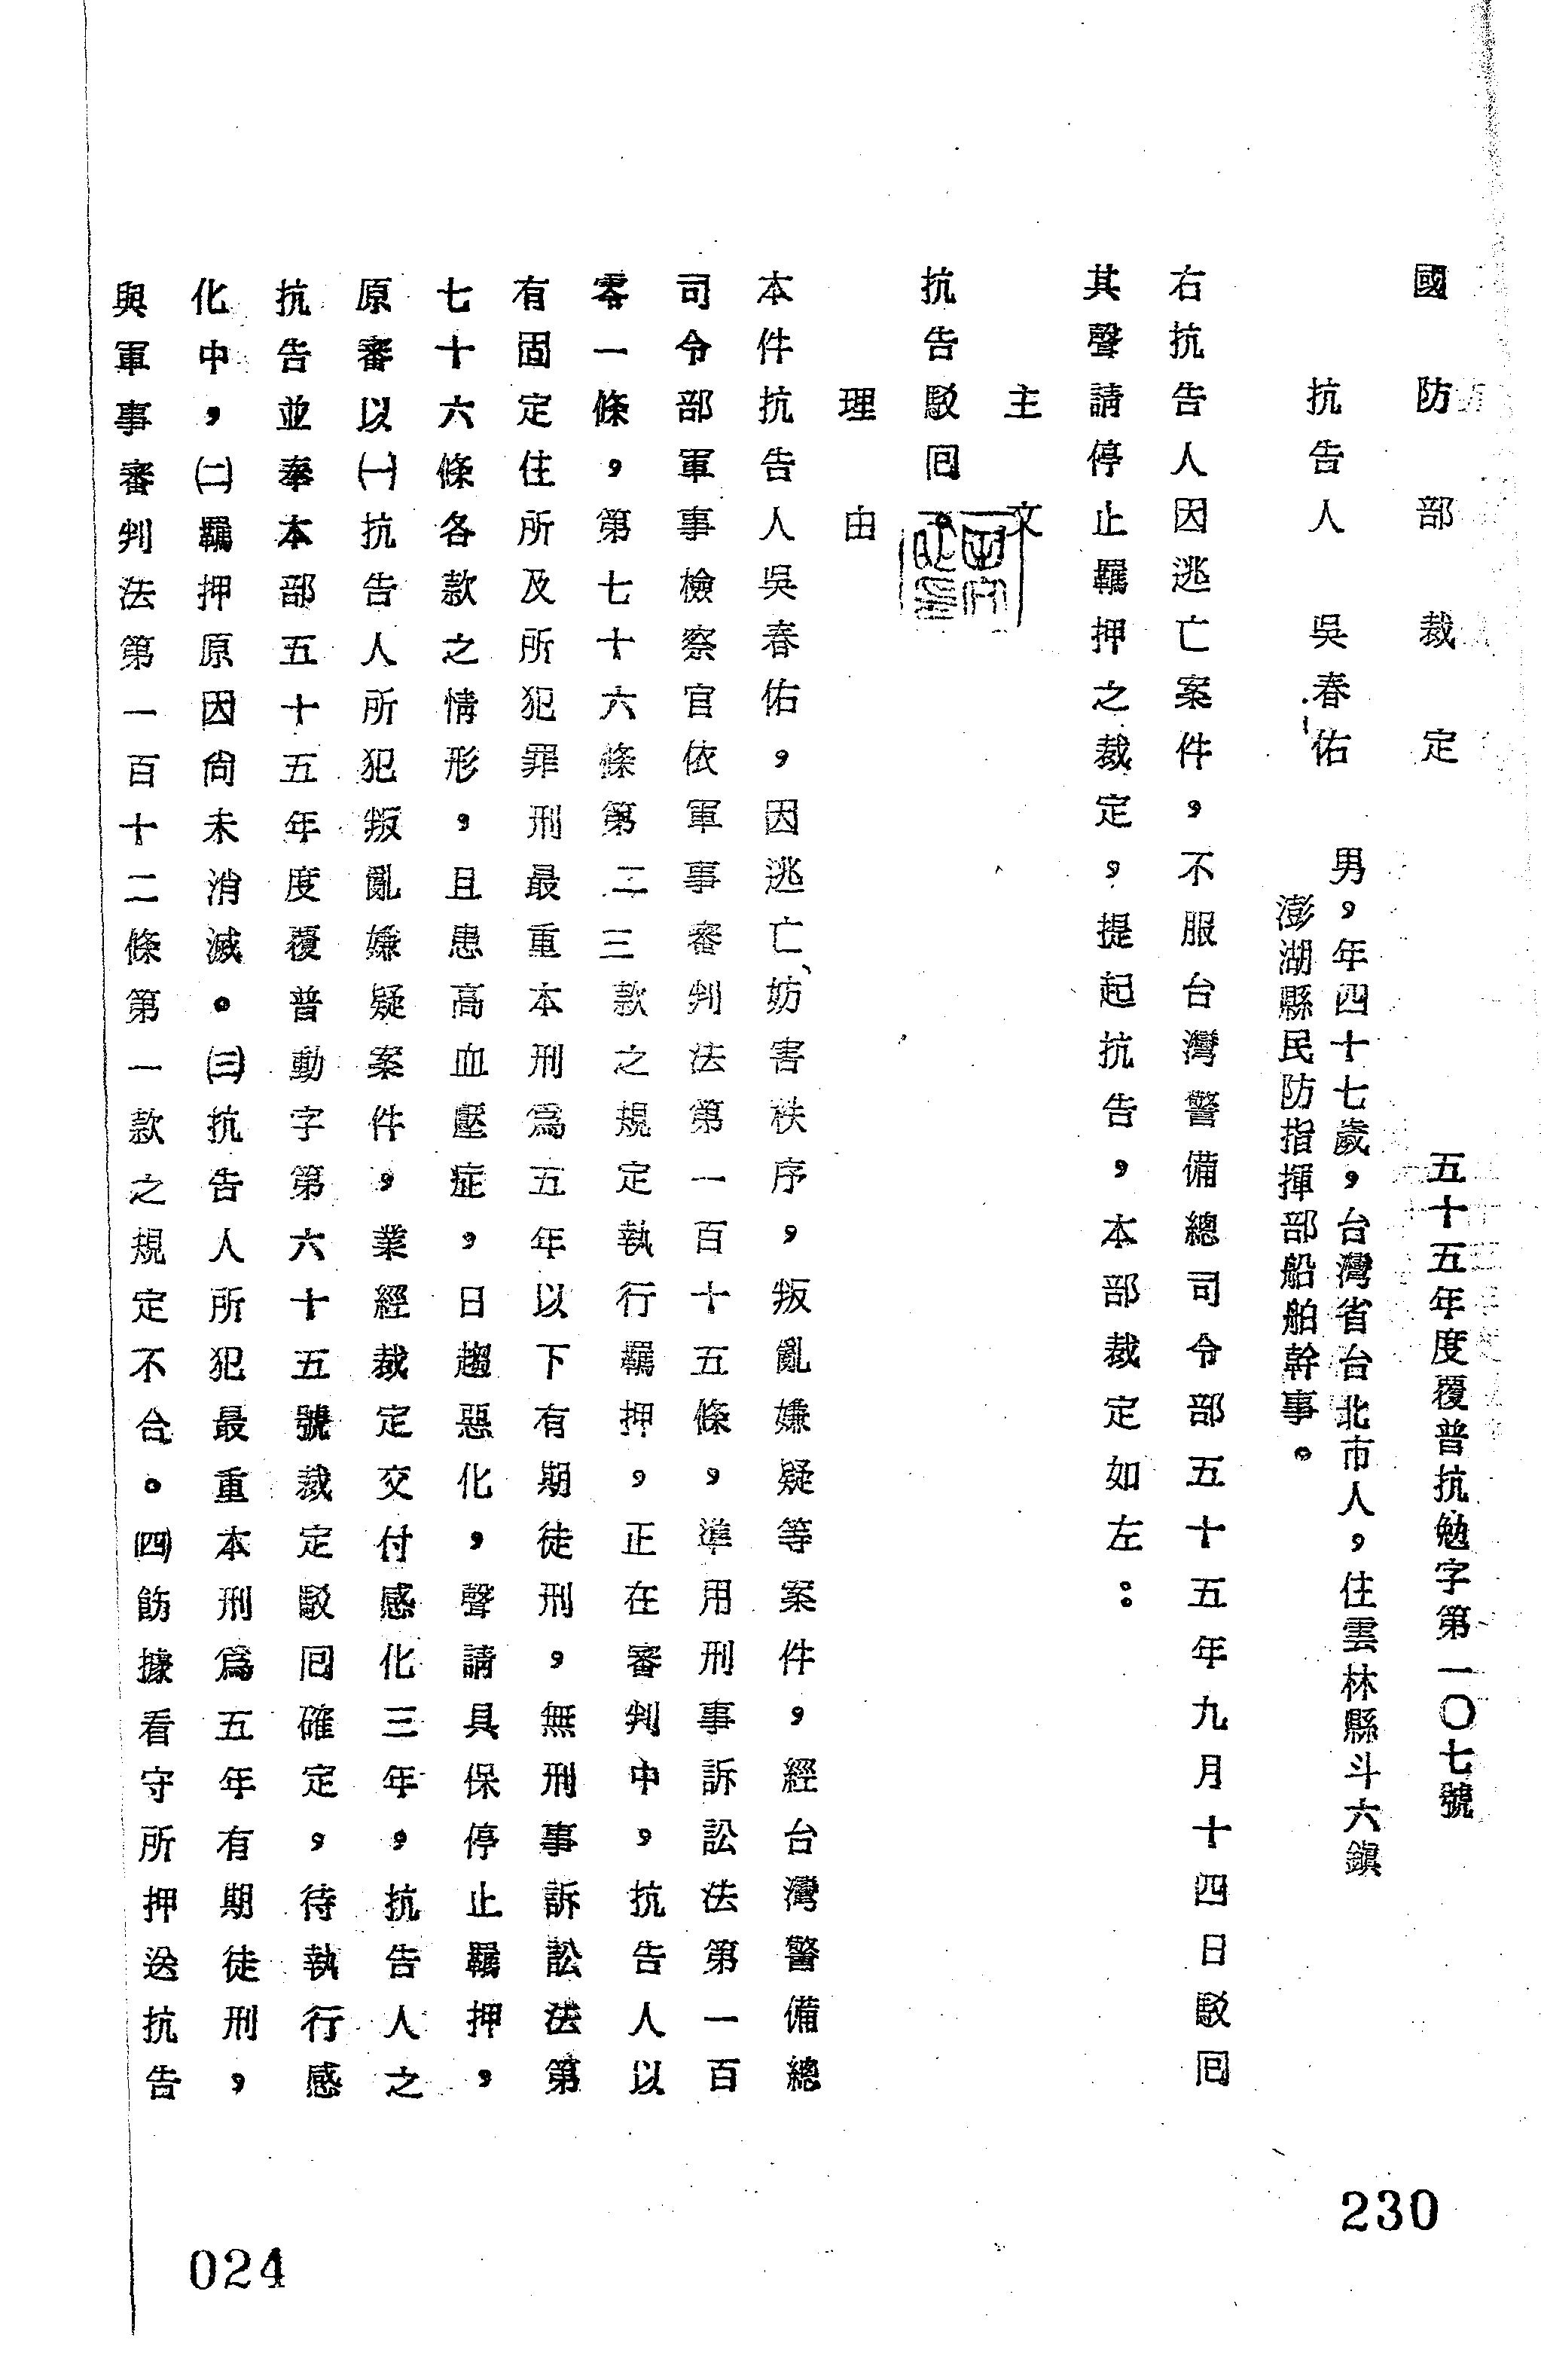 國防部裁定
五十五年度覆普抗勉字第一〇七號
抗告人 吳春佑 男，年四十七歲，台灣省台北市人，住雲林縣斗六鎮
澎湖縣民防指揮部船舶幹事。
右抗告人因逃亡案件，不服台灣警備總司令部五十五年九月十四日駁囘
其聲請停止羈押之裁定，提起抗告，本部裁定如左：
主文
抗告駁囘。
理由
本件抗告人吳春佑，因逃亡、妨害秩序，叛亂嫌疑等案件，經台灣警備總
司令部軍事檢察官依軍事審判法第一百十五條，準用刑事訴訟法第一百
零一條，第七十六條第二三款之規定執行羈押，正在審判中，抗告人以
有固定住所及所犯罪刑最重本刑為五年以下有期徒刑，無刑事訴訟法第
七十六條各款之情形，且患高血壓症，日趨惡化，聲請具保停止羈押，
原審以㈠抗告人所犯叛亂嫌疑案件，業經裁定交付感化三年，抗告人之
抗告並奉本部五十五年度覆普動字第六十五號裁定駁囘確定，待執行感
化中，㈡羈押原因尙未消滅。㈢抗告人所犯最重本刑為五年有期徒刑，
與軍事審判法第一百十二條第一款之規定不合。㈣飭據看守所押送抗告
230
024